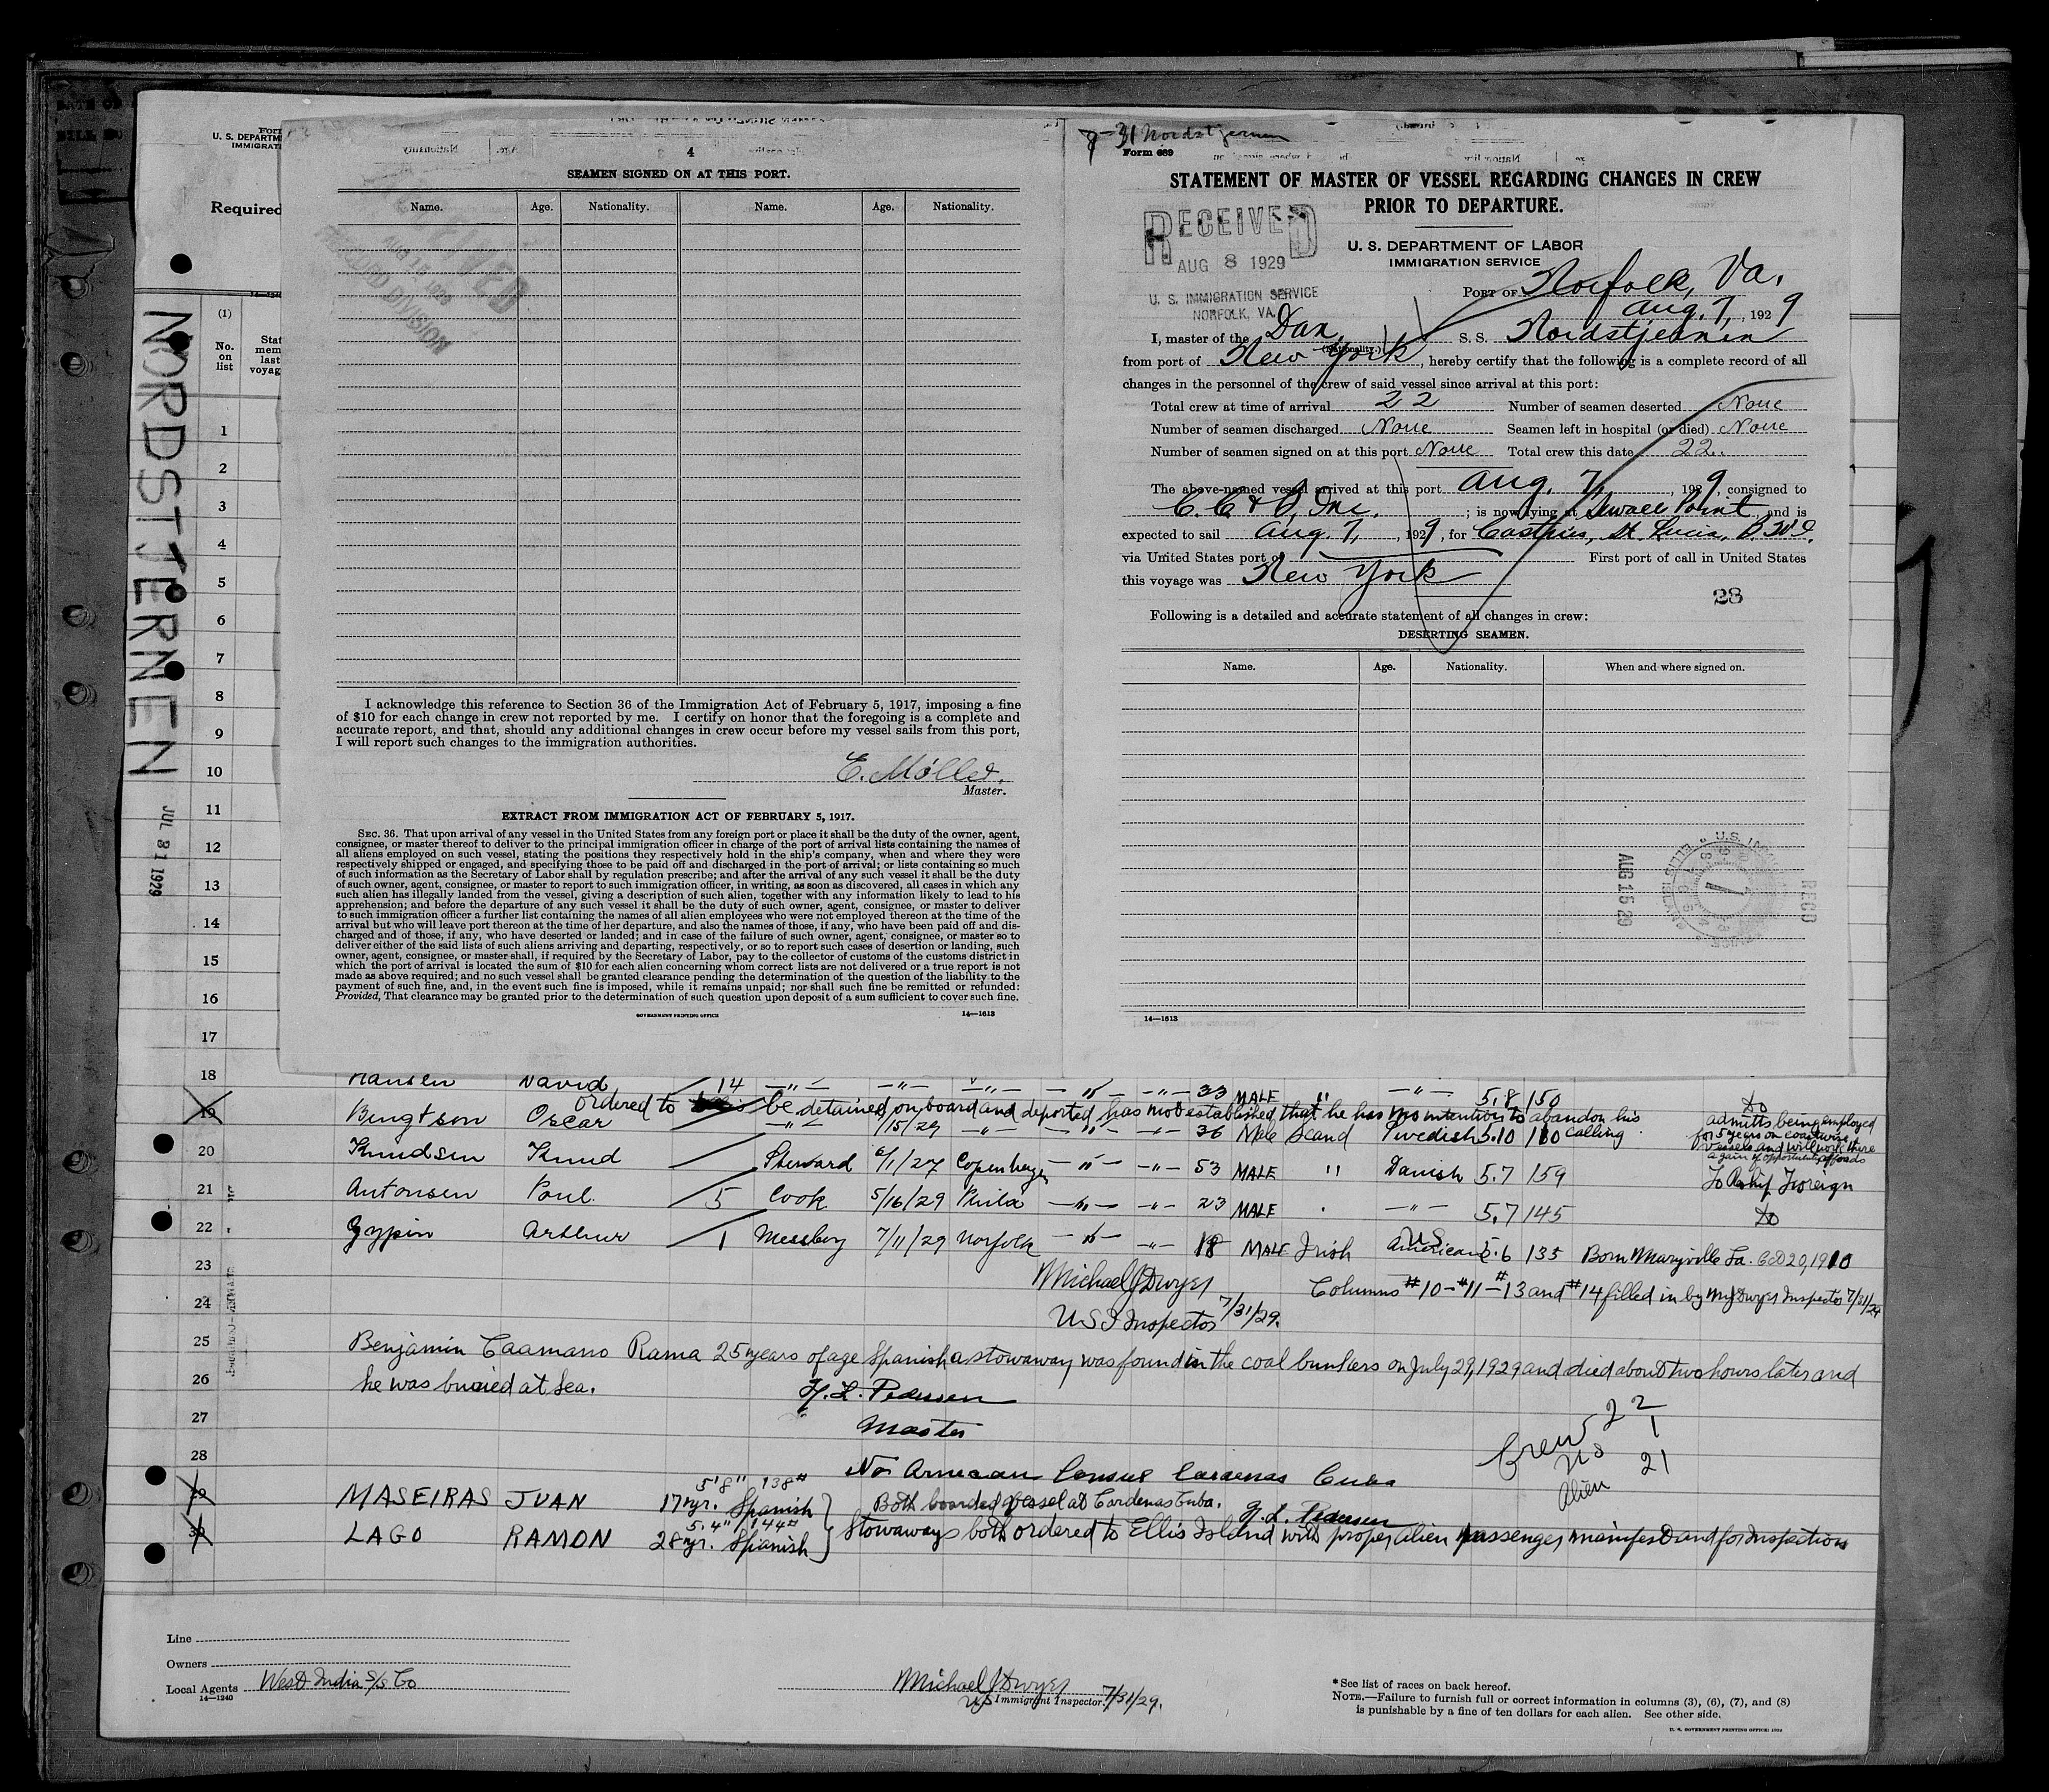 U. S. DEPARTM
IMMIGRATI
Required
NORDSTJERNEN
JUL 31 1929
(1)
No.
on
list
Stat
mem
last
voyag
4
SEAMEN SIGNED ON AT THIS PORT.
Name. Age. Nationality. Name. Age. Nationality.
AUG 15 1929
RECORD DIVISION
I acknowledge this reference to Section 36 of the Immigration Act of February 5, 1917, imposing a fine
of $10 for each change in crew not reported by me. I certify on honor that the foregoing is a complete and
accurate report, and that, should any additional changes in crew occur before my vessel sails from this port,
I will report such changes to the immigration authorities.
E. Møller.
Master.
EXTRACT FROM IMMIGRATION ACT OF FEBRUARY 5, 1917.
SEC. 36. That upon arrival of any vessel in the United States from any foreign port or place it shall be the duty of the owner, agent,
consignee, or master thereof to deliver to the principal immigration officer in charge of the port of arrival lists containing the names of
all aliens employed on such vessel, stating the positions they respectively hold in the ship's company, when and where they were
respectively shipped or engaged, and specifying those to be paid off and discharged in the port of arrival; or lists containing so much
of such information as the Secretary of Labor shall by regulation prescribe; and after the arrival of any such vessel it shall be the duty
of such owner, agent, consignee, or master to report to such immigration officer, in writing, as soon as discovered, all cases in which any
such alien has illegally landed from the vessel, giving a description of such alien, together with any information likely to lead to his
apprehension; and before the departure of any such vessel it shall be the duty of such owner, agent, consignee, or master to deliver
to such immigration officer a further list containing the names of all alien employees who were not employed thereon at the time of the
arrival but who will leave port thereon at the time of her departure, and also the names of those, if any, who have been paid off and dis-
charged and of those, if any, who have deserted or landed; and in case of the failure of such owner, agent, consignee, or master so to
deliver either of the said lists of such aliens arriving and departing, respectively, or so to report such cases of desertion or landing, such
owner, agent, consignee, or master shall, if required by the Secretary of Labor, pay to the collector of customs of the customs district in
which the port of arrival is located the sum of $10 for each alien concerning whom correct lists are not delivered or a true report is not
made as above required; and no such vessel shall be granted clearance pending the determination of the question of the liability to the
payment of such fine, and, in the event such fine is imposed, while it remains unpaid; nor shall such fine be remitted or refunded:
Provided, That clearance may be granted prior to the determination of such question upon deposit of a sum sufficient to cover such fine.
GOVERNMENT PRINTING OFFICE 14—1613
31 Nordstjernen
Form 689
STATEMENT OF MASTER OF VESSEL REGARDING CHANGES IN CREW
PRIOR TO DEPARTURE.
RECEIVED
AUG 8 1929
U. S. IMMIGRATION SERVICE
NORFOLK, VA.
U. S. DEPARTMENT OF LABOR
IMMIGRATION SERVICE
PORT OF Norfolk, Va.
Aug. 7, 1929
I, master of the Dan (Nationality.) S. S. Nordstjernen
from port of New York, hereby certify that the following is a complete record of all
changes in the personnel of the crew of said vessel since arrival at this port:
Total crew at time of arrival 22 Number of seamen deserted None
Number of seamen discharged None Seamen left in hospital (or died) None
Number of seamen signed on at this port None Total crew this date 22.
The above-named vessel arrived at this port Aug. 7, 1929, consigned to
C. C. & O. Inc. ; is now lying at Sewall Point, and is
expected to sail Aug. 7, 1929, for Castries, St. Lucia, B.W.I.
via United States port of First port of call in United States
this voyage was New York
28
Following is a detailed and accurate statement of all changes in crew:
DESERTING SEAMEN.
Name. Age. Nationality. When and where signed on.
AUG 15 29
RECD
14—1613
1
2
3
4
5
6
7
8
9
10
11
12
13
14
15
16
17
18 Hansen David 14 —"— —"— —"— —"— —"— 33 MALE " —"— 5.8 150 do
ordered to be detained on board and deported, has not established that he has no intention to abandon his calling
19 Bengtson Oscar —"— /15/29 —"— —"— —"— 36 Male Scand Swedish 5.10 180
admitts being employed
for 5 years on coastwise
vessels and will work there
again if opportunity affords
20 Knudsen Knud Steward 6/1/27 Copenhagen —"— —"— 53 MALE " Danish 5.7 159 To Reship Foreign
21 Antonsen Poul 5 Cook 5/16/29 Phila —"— —"— 23 MALE " —"— 5.7 145 do
22 Gypin Arthur 1 Messboy 7/11/29 Norfolk —"— —"— 18 MALE Irish US American 5.6 135 Born Maryville La. Oct 20, 1910
23 Michael J Dwyer Columns #10-#11-#13 and #14 filled in by MJ Dwyer Inspector 7/31/29
24 US I Inspector 7/31/29.
25 Benjamin Caamano Rama 25 years of age Spanish a stowaway was found in the coal bunkers on July 29, 1929 and died about two hours later and
26 he was buried at Sea. H. L. Pedersen
27 Master
Crew 22
US 1
Alien 21
28 No American Consul Cardenas Cuba
5'8" 138#
29 MASEIRAS JUAN 17 yr. Spanish Both boarded vessel at Cardenas Cuba. H. L. Pedersen
5.4" 144#
30 LAGO RAMON 28 yr. Spanish Stowaways both ordered to Ellis Island with proper alien passenger manifest and for Inspection
Line
Owners
Local Agents West India S/S Co
14—1240
Michael J Dwyer
US Immigrant Inspector. 7/31/29.
*See list of races on back hereof.
NOTE.—Failure to furnish full or correct information in columns (3), (6), (7), and (8)
is punishable by a fine of ten dollars for each alien. See other side.
U. S. GOVERNMENT PRINTING OFFICE: